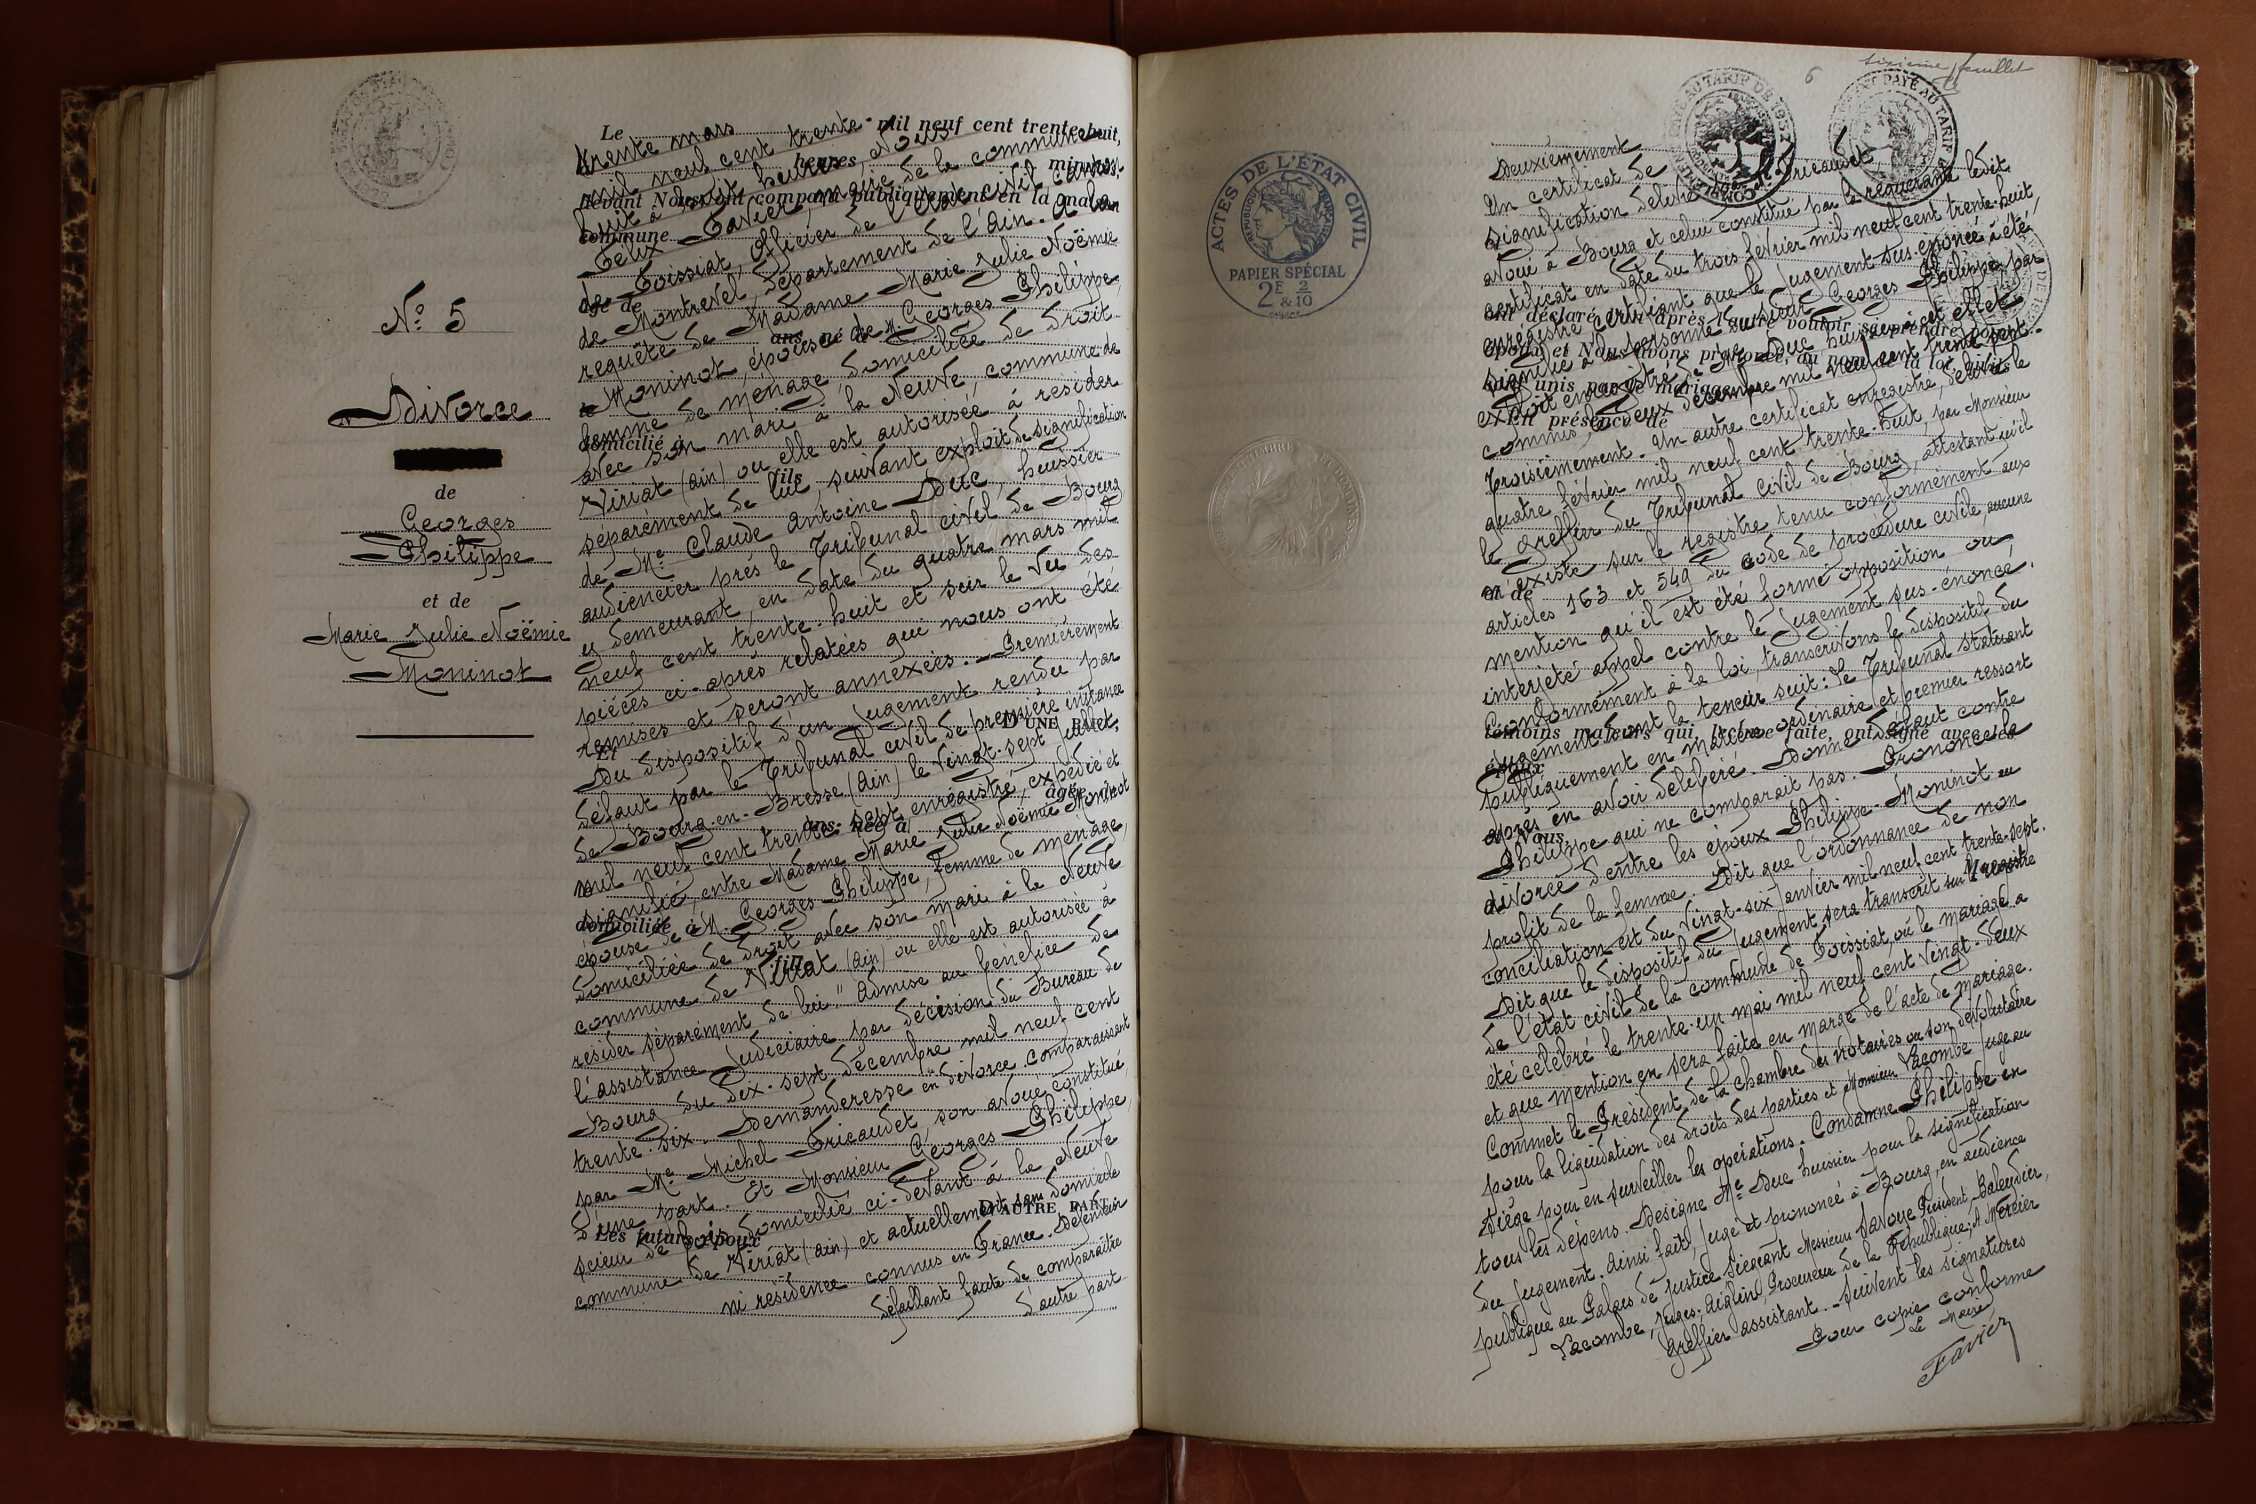 N° 5
Divorce
de
Georges
Philippe
et de
Marie Julie Noëmie
Moninot
Le mil neuf cent trente-huit,
heures minutes
devant Nous ont comparu publiquement en la maison
commune
âgé de
ans, né à
domicilié à
fils
D'UNE PART.
Et
âgée de
ans, née à
domiciliée à
fille
D'AUTRE PART.
Les futurs époux
trente mars
mil neuf cent trente-
huit à heures, Nous
Félix Favier, maire de la commune
de Foissiat, Officier de l'état civil canton
de Montrevel, Département de l'Ain. A la
requête de Madame Marie Julie Noëmie
Moninot, épouse de M. Georges Philippe,
femme de ménage, domiciliée de droit
avec son mari à la Neuve, commune de
Viriat (Ain) où elle est autorisée à résider
séparément de lui, suivant exploit de signification
de Me Claude Antoine Duc, huissier
audiencier près le Tribunal civil de Bourg
y demeurant, en date du quatre mars mil
neuf cent trente-huit et sur le vu des
pièces ci-après relatées qui nous ont été
remises et seront annexées. Premièrement
Du dispositif d'un jugement rendu par
défaut par le Tribunal civil de première instance
de Bourg-en-Bresse (Ain) le vingt-sept juillet,
mil neuf cent trente-sept, enrégistré, expédié et
signifié, entre Madame Marie Julie Noëmie Moninot
épouse de M. Georges Philippe, femme de ménage,
domiciliée de droit avec son mari à la Neuve
commune de Viriat (Ain) où elle est autorisée à
résider séparément de lui "Admise au bénéfice de
l'assistance judiciaire par décision du Bureau de
Bourg du dix-sept décembre mil neuf cent
trente-six. Demanderesse en divorce comparaissant
par Me Michel Fricaudet, son avoué constitué,
D'une part. Et Monsieur Georges Philippe,
scieur de bois domicilié ci-devant à la Neuve
commune de Viriat (Ain) et actuellement sans domicile
ni résidence connus en France. Défendeur
défaillant faute de comparaître
d'autre part
6
sixième feuillet
ACTES DE L'ÉTAT CIVIL
RÉPUBLIQUE FRANÇAISE
PAPIER SPÉCIAL
2E 2/10
& 10
ont déclaré l'un après l'autre vouloir se prendre pour
époux et Nous avons prononcé, au nom de la loi, qu'ils
sont unis par le mariage.
En présence de
et de
témoins majeurs qui, lecture faite, ont signé avec les
époux
et Nous.
Deuxièmement
Un certificat de
signification délivré par Me Fricaudet,
avoué à Bourg et celui constitué par la requérante ledit
certificat en date du trois février mil neuf cent trente-huit
enrégistré certifiant que le jugement sus-énoncé a été
signifié à la personne du sieur Georges Philippe par
exploit enregistré de Me Duc huissier à cet effet
commis, le deux décembre mil neuf cent trente-sept.
Troisièmement. Un autre certificat enregistré, délivré le
quatre février mil neuf cent trente-huit, par Monsieur
le Greffier du Tribunal civil de Bourg, attestant qu'il
n'existe sur le registre tenu conformément aux
articles 163 et 549 du Code de procédure civile, aucune
mention qu'il est été formé opposition ou
interjeté appel contre le jugement sus-énoncé.
Conformément à la loi, transcrivons le dispositif du
jugement dont la teneur suit: Le Tribunal statuant
publiquement en matière ordinaire et premier ressort
après en avoir délibéré. Donne défaut contre
Philippe qui ne comparait pas. Prononce le
divorce d'entre les époux Philippe-Moninot au
profit de la femme. Dit que l'ordonnance de non
conciliation est du vingt-six janvier mil neuf cent trente-sept.
Dit que le dispositif du jugement sera transcrit sur le registre
de l'état civil de la commune de Foissiat, où le mariage a
été célébré le trente-un mai mil neuf cent vingt-deux
et que mention en sera faite en marge de l'acte de mariage.
Commet le Président de la chambre des notaires ou son dévolutaire
pour la liquidation des droits des parties et Monsieur Lacombe juge au
siège pour en surveiller les opérations. Condamne Philippe en
tous les dépens. Désigne Me Duc huissier pour la signification
du jugement. Ainsi fait, jugé et prononcé à Bourg, en audience
publique au Palais de Justice siégeant Messieurs Savoye Président, Baleydier,
Lacombe, Juges. Aiglin, Procureur de la République, A Mercier
greffier assistant. Suivent les signatures
Pour copie conforme
Le Maire
Favier